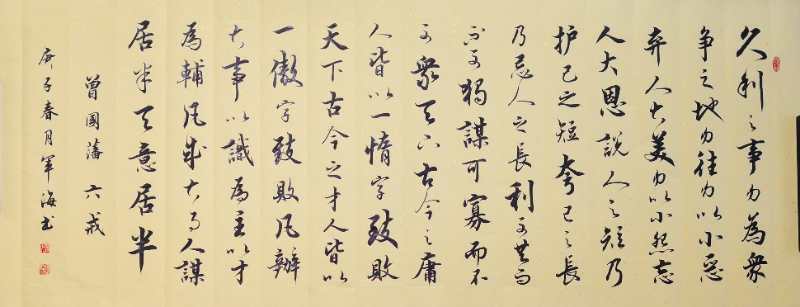 久利之事勿為衆
争之地勿往勿以小惡
弃人大美勿以小怨忘
人大恩說人之短乃
护己之短夸己之長
乃忌人之長利可共而
不可獨謀可寡而不
可衆天下古今之庸
人皆以一惰字致敗
天下古今之才人皆以
一傲字致敗凡辦
大事以識為主以才
為輔凡成大事人謀
居半天意居半
曾國藩六戒
庚子春月軍海书